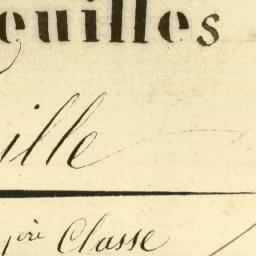 euilles
ille
1ère Classe